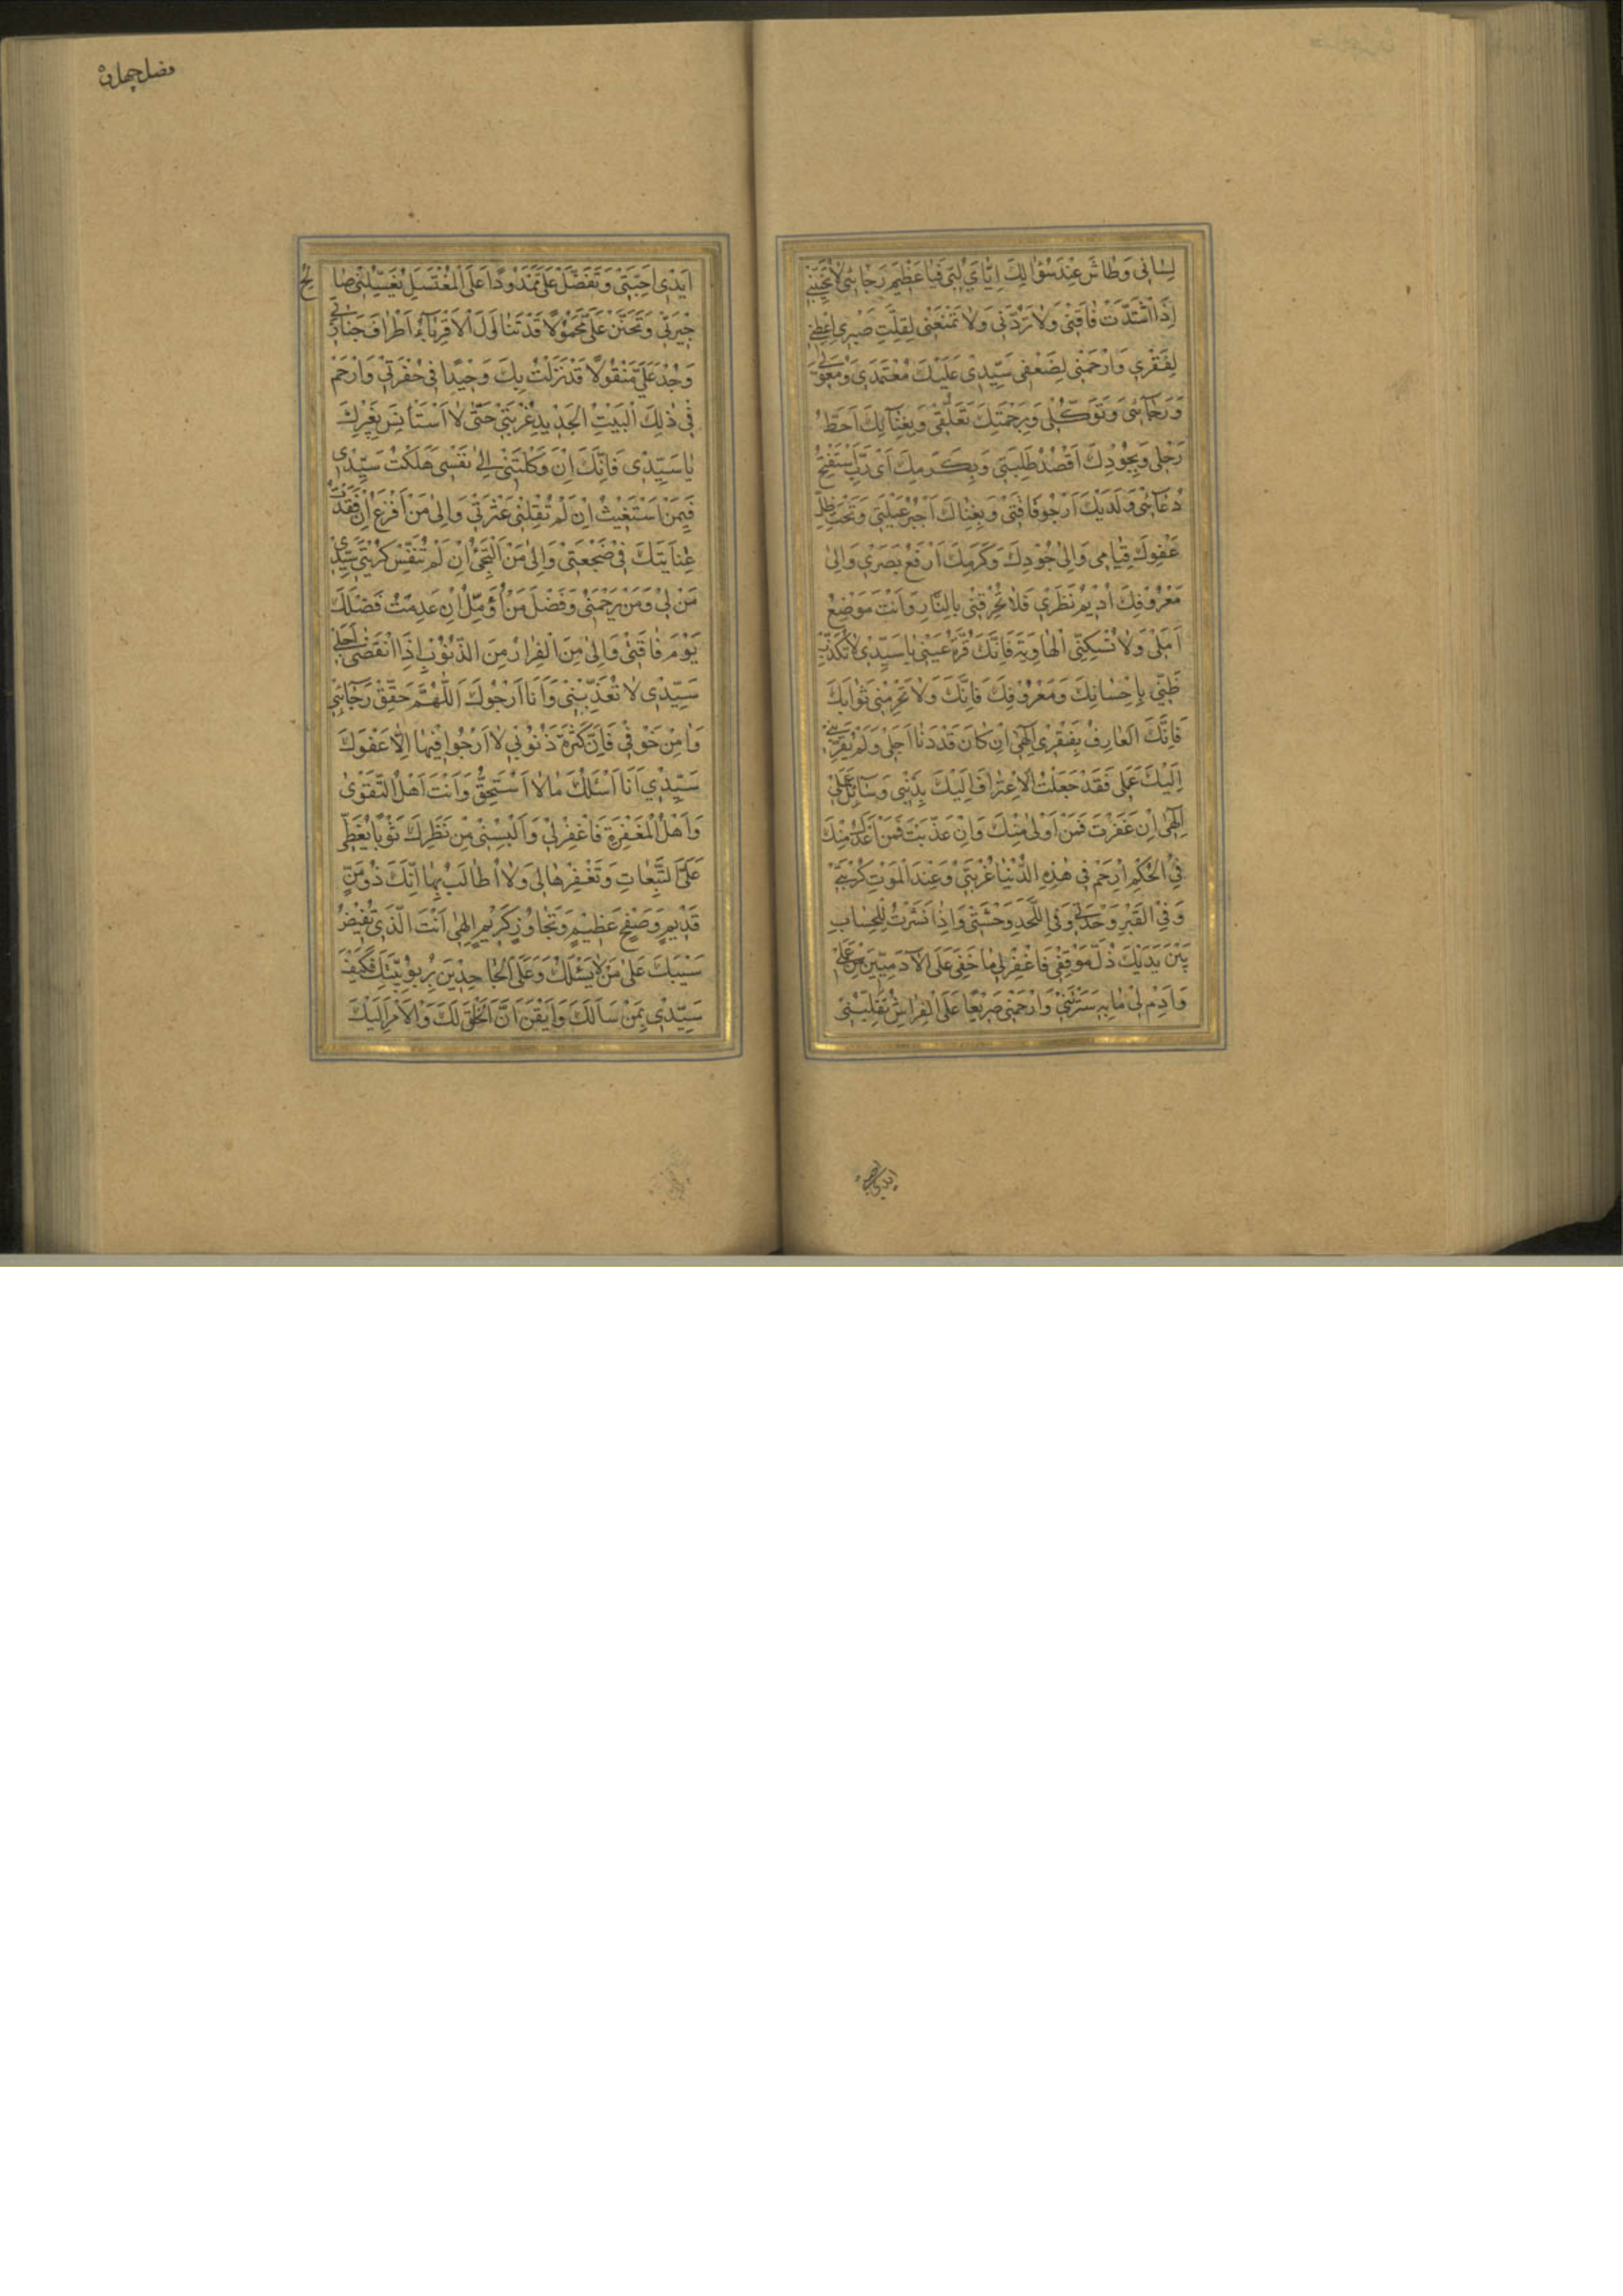 لِسٰانِی وَطٰاشَ عِنْدَ سُؤٰالِكَ اِیّٰایَ لُبّی فَیٰا عَظیمَ رَجٰائی لٰا تُخَیِّبْنی
اِذَا اشْتَدَّتْ فٰاقَتی وَلٰا تَرُدَّنی وَلٰا تَمْنَعْنی لِقِلَّتِ صَبْری اَعْطِنی
لِفَقْری وَارْحَمْنی لِضَعْفی سَیِّدی عَلَیْكَ مُعْتَمَدی وَمُعَوَّلی
وَرَجٰائی وَتَوَكُّلی وَبِرَحْمَتِكَ تَعَلُّقی وَبِفِنٰائِكَ اَحُطُّ
رَحْلی وَبِجُودِكَ اَقْصُدُ طَلِبَتی وَبِكَرَمِكَ اَیْ رَبِّ اسْتَفْتِحُ
دُعٰائی وَلَدَیْكَ اَرْجُو فٰاقَتی وَبِغِنٰاكَ اَجْبُرُ عَیْلَتی وَتَحْتَ ظِلِّ
عَفْوِكَ قِیٰامی وَاِلیٰ جُودِكَ وَكَرَمِكَ اَرْفَعُ بَصَری وَاِلیٰ
مَعْرُوفِكَ اُدیمُ نَظَری فَلٰا تُحْرِقْنی بِالنّٰارِ وَاَنْتَ مَوْضِعُ
اَمَلی وَلٰا تُسْكِنِّی الْهٰاوِیَةَ فَاِنَّكَ قُرَّةُ عَیْنی یٰا سَیِّدی لٰا تُكَذِّبْ
ظَنّی بِاِحْسٰانِكَ وَمَعْرُوفِكَ فَاِنَّكَ وَلٰا تَحْرِمْنی ثَوٰابَكَ
فَاِنَّكَ الْعٰارِفُ بِفَقْری اِلٰهی اِنْ كٰانَ قَدْ دَنٰا اَجَلی وَلَمْ یُقَرِّبْنی
اِلَیْكَ عَمَلی فَقَدْ جَعَلْتُ الْاِعْتِرٰافَ اِلَیْكَ بِذَنْبی وَسٰائِلَ عِلَلی
اِلٰهی اِنْ غَفَرْتَ فَمَنْ اَوْلیٰ مِنْكَ وَاِنْ عَذَّبْتَ فَمَنْ اَعْدَلُ مِنْكَ
فِی الْحُكْمِ اِرْحَمْ فی هٰذِهِ الدُّنْیٰا غُرْبَتی وَعِنْدَ الْمَوْتِ كُرْبَتی
وَفِی الْقَبْرِ وَحْدَتی وَفِی اللَّحْدِ وَحْشَتی وَاِذٰا نُشِرْتُ لِلْحِسٰابِ
بَیْنَ یَدَیْكَ ذُلَّ مَوْقِفی فَاغْفِرْلی مٰا خَفِیَ عَلَی الْآدَمِیّینَ مِنْ عَمَلی
وَاَدِمْ لی مٰا بِهِ سَتَرْتَنی وَارْحَمْنی صَریعًا عَلَی الْفِرٰاشِ تُقَلِّبُنی
ایدی احبتی
فضل چهاره
اَیْدی اَحِبَّتی وَتَفَضَّلْ عَلَیَّ مَمْدُودًا عَلَی الْمُغْتَسَلِ یُغَسِّلُنی صٰالِحُ
جیرَتی وَتَحَنَّنْ عَلَیَّ مَحْمُولًا قَدْ تَنٰاوَلَ الْاَقْرِبٰاءُ اَطْرٰافَ جَنٰازَتی
وَجُدْ عَلَیَّ مَنْقُولًا قَدْ نَزَلْتُ بِكَ وَحیدًا فی حُفْرَتی وَارْحَمْ
فی ذٰلِكَ الْبَیْتِ الْجَدیدِ غُرْبَتی حَتّٰی لٰا اَسْتَأْنِسَ بِغَیْرِكَ
یٰا سَیِّدی فَاِنَّكَ اِنْ وَكَلْتَنی اِلیٰ نَفْسی هَلَكْتُ سَیِّدی
فَبِمَنْ اَسْتَغیثُ اِنْ لَمْ تُقِلْنی عَثْرَتی وَاِلیٰ مَنْ اَفْزَعُ اِنْ فَقَدْتُ
عِنٰایَتَكَ فی ضَجْعَتی وَاِلیٰ مَنْ اَلْتَجِئُ اِنْ لَمْ تُنَفِّسْ كُرْبَتی سَیِّدی
مَنْ لی وَمَنْ یَرْحَمُنی وَفَضْلَ مَنْ اُؤَمِّلُ اِنْ عَدِمْتُ فَضْلَكَ
یَوْمَ فٰاقَتی وَاِلیٰ مِنَ الْفِرٰارُ مِنَ الذُّنُوبِ اِذَا انْقَضیٰ اَجَلی
سَیِّدی لٰا تُعَذِّبْنی وَاَنَا اَرْجُوكَ اَللّٰهُمَّ حَقِّقْ رَجٰائی
وَاٰمِنْ خَوْفی فَاِنَّ كَثْرَةَ ذُنُوبی لٰا اَرْجُوا فیهٰا اِلّٰا عَفْوَكَ
سَیِّدی اَنَا اَسْئَلُكَ مٰا لٰا اَسْتَحِقُّ وَاَنْتَ اَهْلُ التَّقْویٰ
وَاَهْلُ الْمَغْفِرَةِ فَاغْفِرْلی وَاَلْبِسْنی مِنْ نَظَرِكَ ثَوْبًا یُغَطّی
عَلَیَّ التَّبِعٰاتِ وَتَغْفِرُهٰا لی وَلٰا اُطٰالَبُ بِهٰا اِنَّكَ ذُو مَنٍّ
قَدیمٍ وَصَفْحٍ عَظیمٍ وَتَجٰاوُزٍ كَریمٍ اِلٰهی اَنْتَ الَّذی تُفیضُ
سَیْبَكَ عَلیٰ مَنْ لٰا یَسْئَلُكَ وَعَلَی الْجٰاحِدینَ بِرُبُوبِیَّتِكَ فَكَیْفَ
سَیِّدی بِمَنْ سَاَلَكَ وَاَیْقَنَ اَنَّ الْخَلْقَ لَكَ وَالْاَمْرَ اِلَیْكَ